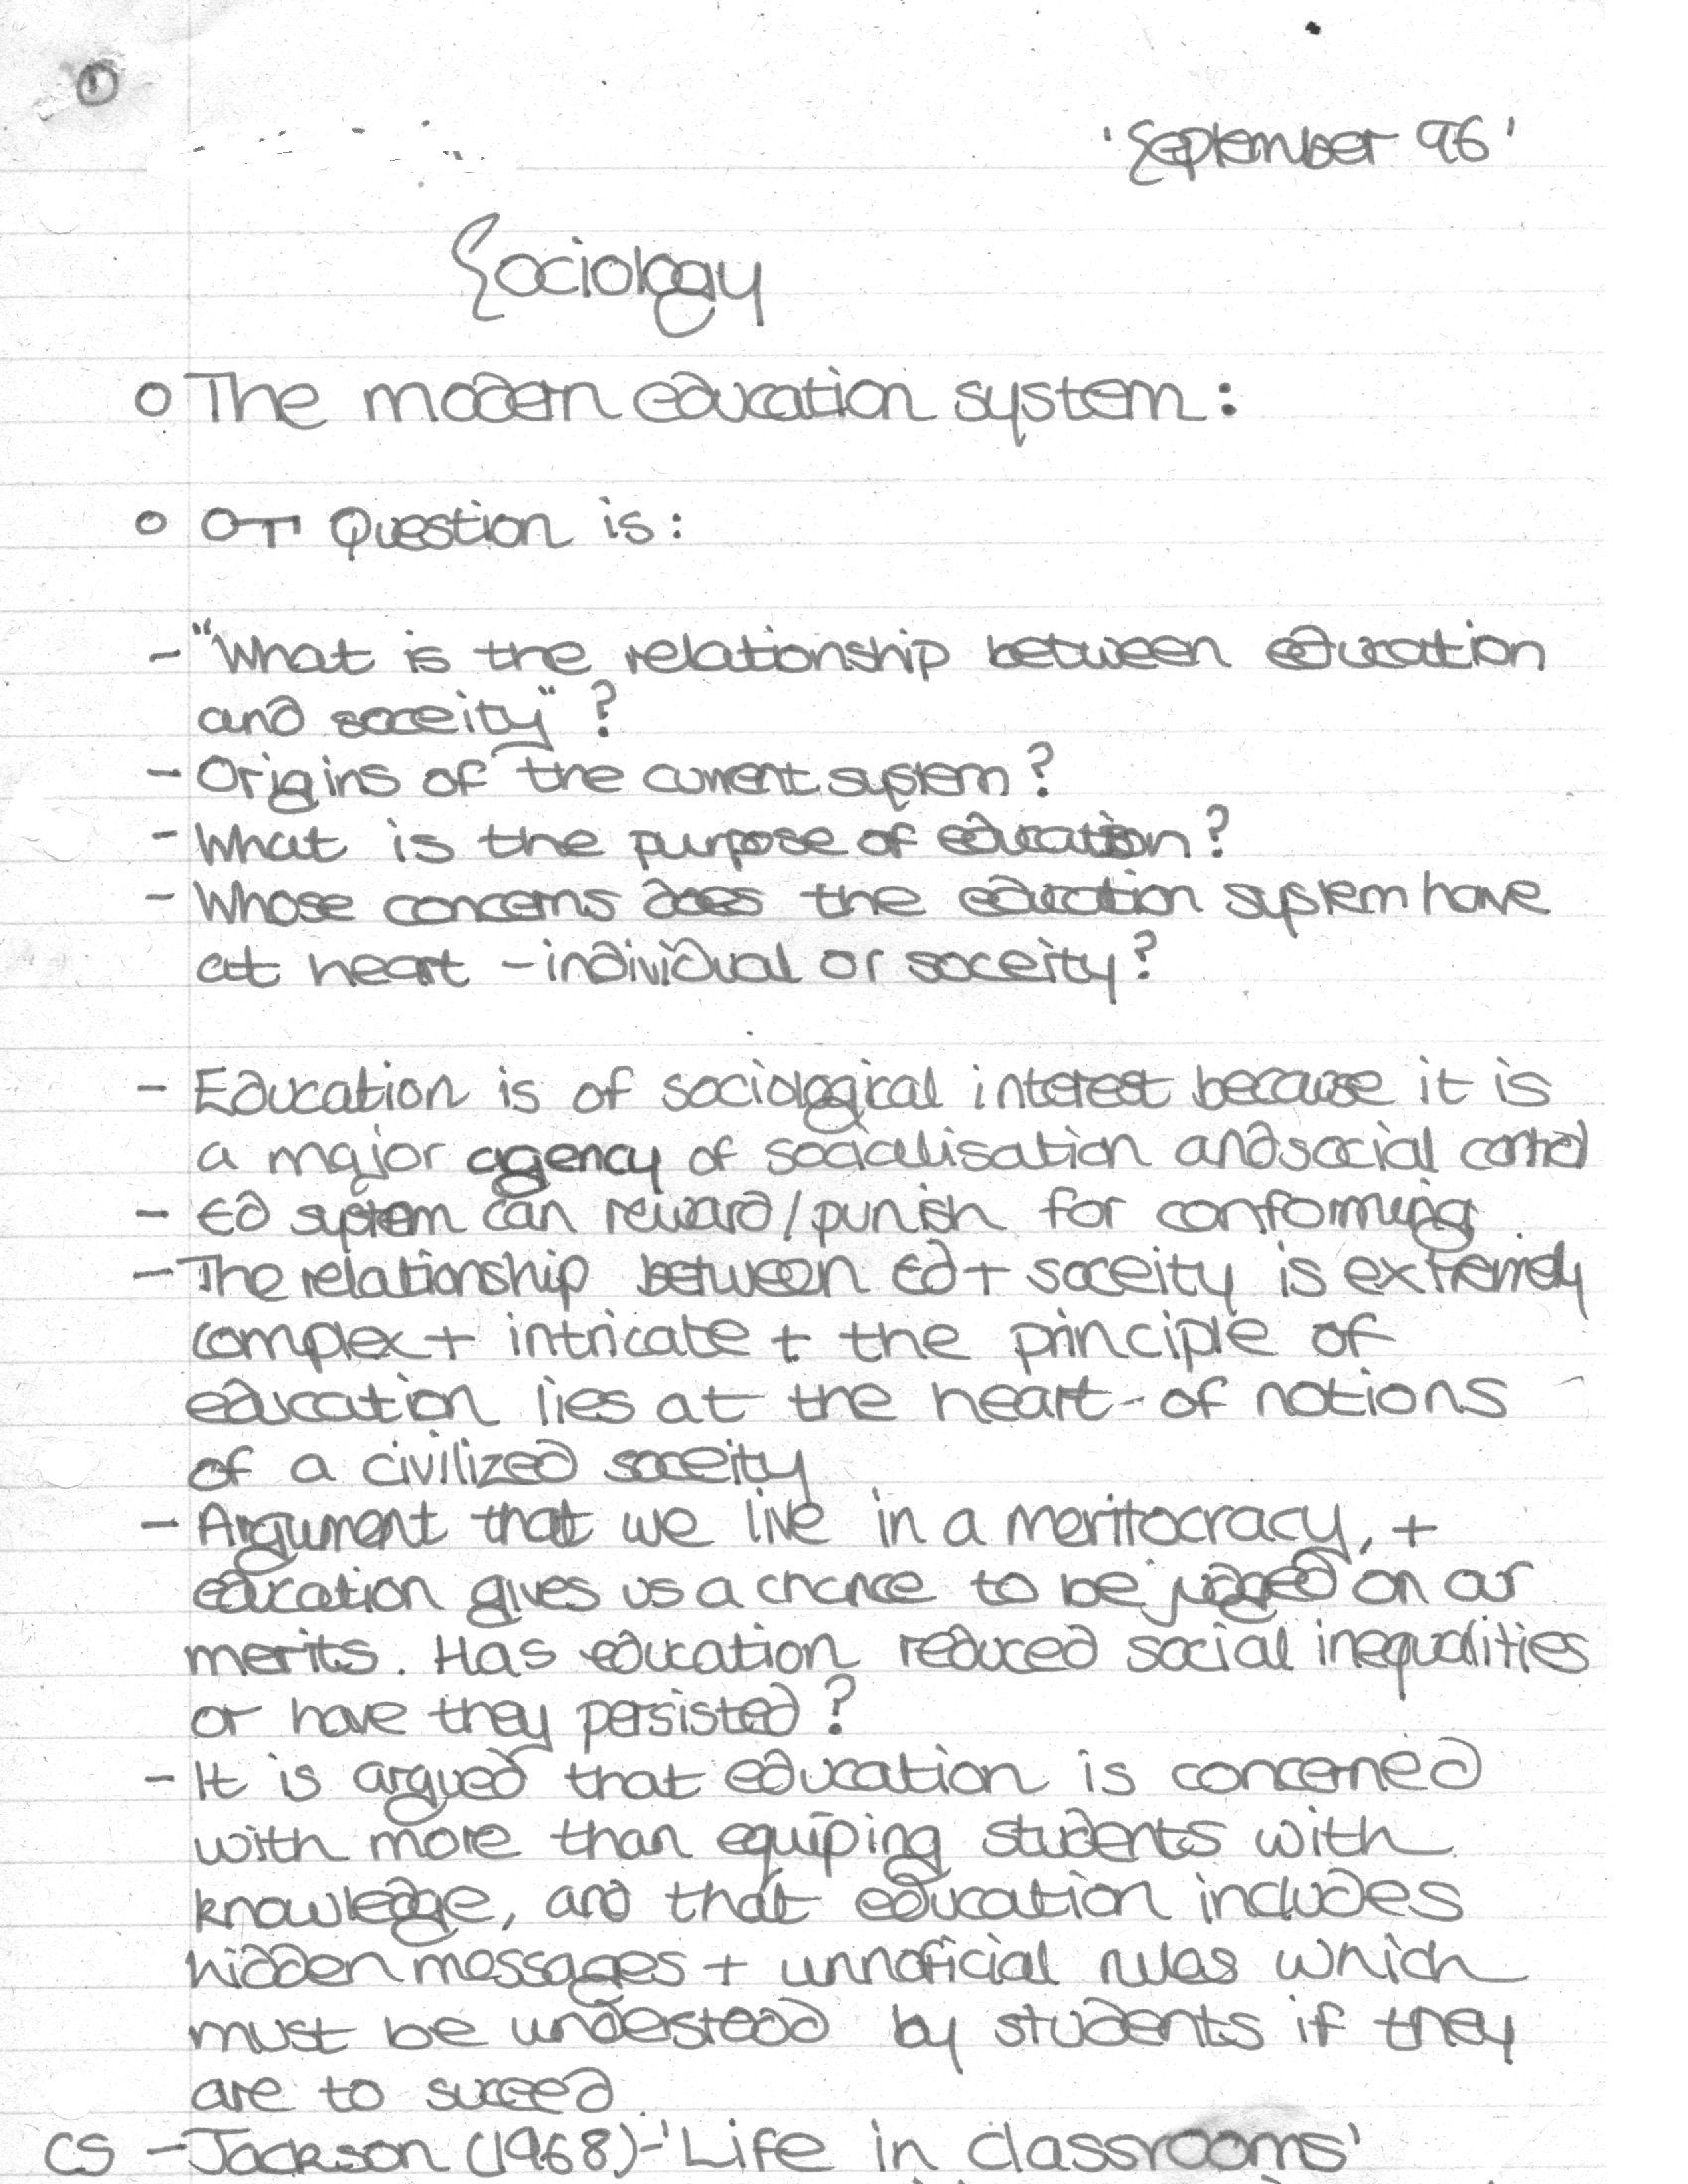 1
'September 96'
Sociology
o The modern education system:
o O⊤ Question is:
- "What is the relationship between education
and soceity"?
- Origins of the current system?
- What is the purpose of education?
- Whose concerns does the education system have
at heart - individual or soceity?
- Education is of sociological interest because it is
a major agency of socialisation and social control
- Ed system can reward/punish for conforming
- The relationship between Ed + soceity is extremely
complex + intricate + the principle of
education lies at the heart - of notions
of a civilized soceity
- Argument that we live in a meritocracy, +
education gives us a chance to be judged on our
merits. Has education reduced social inequalities
or have they persisted?
- It is argued that education is concerned
with more than equiping students with
knowledge, and that education includes
hidden messages + unnoficial rules which
must be understood by students if they
are to suceed
CS - Jackson (1968) - 'Life in classrooms'